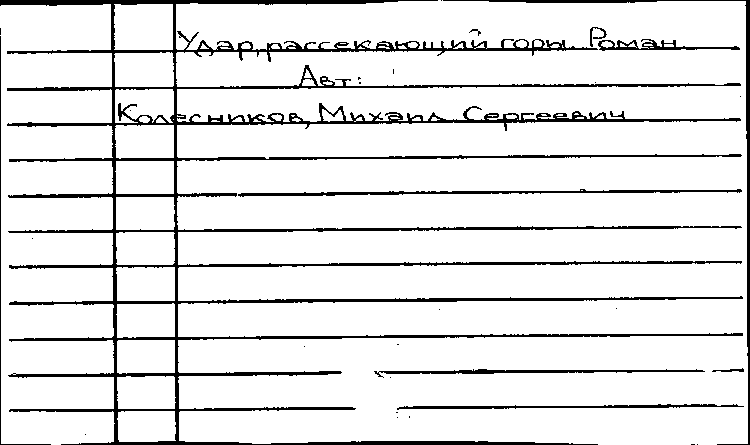 Удар, рассекающий горы. Роман.
Авт:
Колесников, Михаил Сергеевич